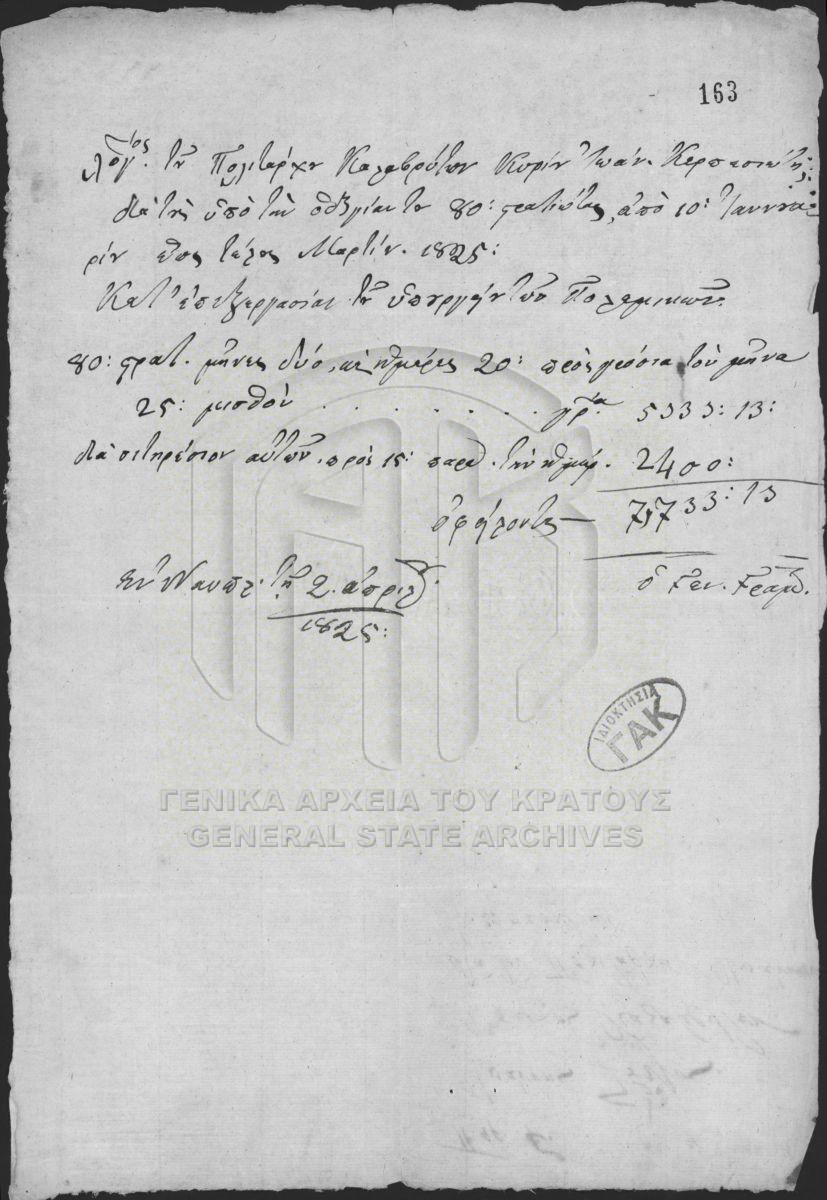 163
λογ:ιος τοῦ Πολιτάρχου Καλαβρύτων Κυρίου Ἰωάν. Κερπασιώτη:
διὰ τοὺς ὑπὸ τὴν ὁδηγίαν του 80: στρατιώτας, ἀπὸ 10: Ἰαννουα-
ρίου ἕως τέλος Μαρτίου. 1825:
Κατ' ἐπεξεργασίαν τοῦ ὑπουργείου τῶν Πολεμικῶν.
80: στρατ. μῆνες δύο, καὶ ἡμέρες 20: πρὸς γρόσια τὸν μῆνα
25: μισθὸν . . . . . . . . γρ. 5333: 13:
διὰ σιτηρέσιον αὐτῶν. πρὸς 15: παρ. τὴν ἡμέρ. 2400:
ὀφείλονται — 7,733: 13
Ἐν Ναυπλ. τῇ 2. ἀπριλ.
1825:
ὁ Γεν. Γραμ.
ΙΔΙΟΚΤΗΣΙΑ
ΓΑΚ
ΓΕΝΙΚΑ ΑΡΧΕΙΑ ΤΟΥ ΚΡΑΤΟΥΣ
GENERAL STATE ARCHIVES